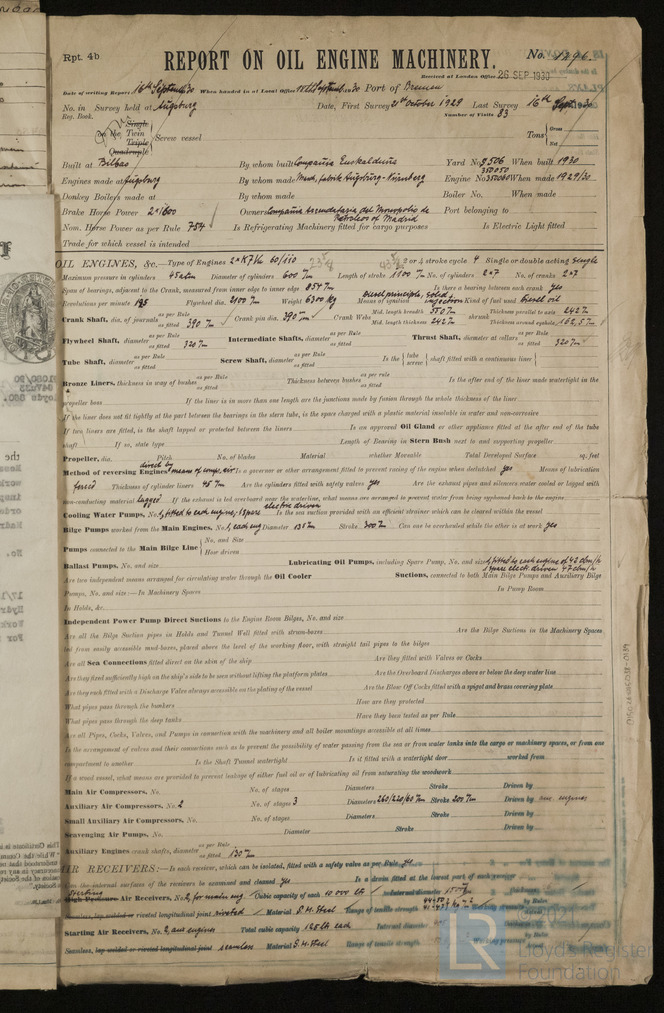 Rpt. 4b
REPORT ON OIL ENGINE MACHINERY.
No. 1296.
Received at London Office 26 SEP 1930
Date of writing Report 16th September 1930 When handed in at Local Office Port of Bremen
No. in Reg. Book. Survey held at Augsburg Date, First Survey 21st October 1929 Last Survey 16th Sept. 1930
Number of Visits 83
on the Single Twin Triple Quadruple Screw vessel Tons Gross Net
Built at Bilbao By whom built Compañia Euskalduna Yard No. When built 1930
Engines made at Augsburg By whom made Masch. fabrik Augsburg-Nürnberg Engine No. When made 1929/30
Donkey Boilers made at By whom made Boiler No. When made
Brake Horse Power 2x1600 Owners Compañia Arrendataria del Monopolio de Petroleos of Madrid Port belonging to
Nom. Horse Power as per Rule 754 Is Refrigerating Machinery fitted for cargo purposes Is Electric Light fitted
Trade for which vessel is intended
OIL ENGINES, &c.—Type of Engines 60/110 2 or 4 stroke cycle 4 Single or double acting Single
Maximum pressure in cylinders 45 atm Diameter of cylinders 600 m/m Length of stroke 1100 m/m No. of cylinders 2x7 No. of cranks 2x7
Span of bearings, adjacent to the Crank, measured from inner edge to inner edge 854 m/m Is there a bearing between each crank yes
Revolutions per minute 135 Flywheel dia. 2100 m/m Weight 6300 kg Means of ignition Diesel principle, solid injection Kind of fuel used Diesel oil
Crank Shaft, dia. of journals as per Rule as fitted 390 m/m Crank pin dia. 390 m/m Crank Webs Mid. length breadth 550 m/m Mid. length thickness 242 m/m shrunk Thickness parallel to axis 242 m/m Thickness around eyehole 162,5 m/m
Flywheel Shaft, diameter as per Rule as fitted 320 m/m Intermediate Shafts, diameter as per Rule as fitted Thrust Shaft, diameter at collars as per Rule as fitted 320 m/m
Tube Shaft, diameter as per Rule as fitted Screw Shaft, diameter as per Rule as fitted Is the tube screw shaft fitted with a continuous liner
Bronze Liners, thickness in way of bushes as per Rule as fitted Thickness between bushes as per rule as fitted Is the after end of the liner made watertight in the
propeller boss If the liner is in more than one length are the junctions made by fusion through the whole thickness of the liner
If the liner does not fit tightly at the part between the bearings in the stern tube, is the space charged with a plastic material insoluble in water and non-corrosive
If two liners are fitted, is the shaft lapped or protected between the liners Is an approved Oil Gland or other appliance fitted at the after end of the tube
shaft If so, state type Length of Bearing in Stern Bush next to and supporting propeller
Propeller, dia. Pitch No. of blades Material whether Moveable Total Developed Surface sq. feet
Method of reversing Engines direct by means of compr. air Is a governor or other arrangement fitted to prevent racing of the engine when declutched yes Means of lubrication
forced Thickness of cylinder liners 45 m/m Are the cylinders fitted with safety valves yes Are the exhaust pipes and silencers water cooled or lagged with
non-conducting material lagged If the exhaust is led overboard near the waterline, what means are arranged to prevent water from being syphoned back to the engine
Cooling Water Pumps, No. 1 fitted to each engine, 1 spare electric driven Is the sea suction provided with an efficient strainer which can be cleared within the vessel
Bilge Pumps worked from the Main Engines, No. 1 each eng Diameter 135 m/m Stroke 300 m/m Can one be overhauled while the other is at work yes
Pumps connected to the Main Bilge Line No. and Size How driven
Ballast Pumps, No. and size Lubricating Oil Pumps, including Spare Pump, No. and size 1 fitted to each engine of 42 cbm/h 1 spare electr. driven 47 cbm/h
Are two independent means arranged for circulating water through the Oil Cooler Suctions, connected to both Main Bilge Pumps and Auxiliary Bilge
Pumps, No. and size:—In Machinery Spaces In Pump Room
In Holds, &c.
Independent Power Pump Direct Suctions to the Engine Room Bilges, No. and size
Are all the Bilge Suction pipes in Holds and Tunnel Well fitted with strum-boxes Are the Bilge Suctions in the Machinery Spaces
led from easily accessible mud-boxes, placed above the level of the working floor, with straight tail pipes to the bilges
Are all Sea Connections fitted direct on the skin of the ship Are they fitted with Valves or Cocks
Are they fixed sufficiently high on the ship's side to be seen without lifting the platform plates Are the Overboard Discharges above or below the deep water line
Are they each fitted with a Discharge Valve always accessible on the plating of the vessel Are the Blow Off Cocks fitted with a spigot and brass covering plate
What pipes pass through the bunkers How are they protected
What pipes pass through the deep tanks Have they been tested as per Rule
Are all Pipes, Cocks, Valves, and Pumps in connection with the machinery and all boiler mountings accessible at all times
Is the arrangement of valves and their connections such as to prevent the possibility of water passing from the sea or from water tanks into the cargo or machinery spaces, or from one
compartment to another Is the Shaft Tunnel watertight Is it fitted with a watertight door worked from
If a wood vessel, what means are provided to prevent leakage of either fuel oil or of lubricating oil from saturating the woodwork
Main Air Compressors, No. No. of stages Diameters Stroke Driven by
Auxiliary Air Compressors, No. 2 No. of stages 3 Diameters 260/220/60 m/m Stroke 200 m/m Driven by aux. engines
Small Auxiliary Air Compressors, No. No. of stages Diameters Stroke Driven by
Scavenging Air Pumps, No. Diameter Stroke Driven by
Auxiliary Engines crank shafts, diameter as per Rule as fitted 130 m/m
AIR RECEIVERS:—Is each receiver, which can be isolated, fitted with a safety valve as per Rule yes
Can the internal surfaces of the receivers be examined and cleaned yes Is a drain fitted at the lowest part of each receiver
High Pressure Starting Air Receivers, No. 2, for main eng Cubic capacity of each 10.000 ltr Internal diameter
Seamless, lap welded or riveted longitudinal joint riveted Material S.M. Steel Range of tensile strength
Starting Air Receivers, No. 2, aux engines Total cubic capacity 125 ltr each Internal diameter
Seamless, lap welded or riveted longitudinal joint seamless Material S.M. Steel Range of tensile strength Working pressure
LR
© 2021
Lloyd's Register
Foundation